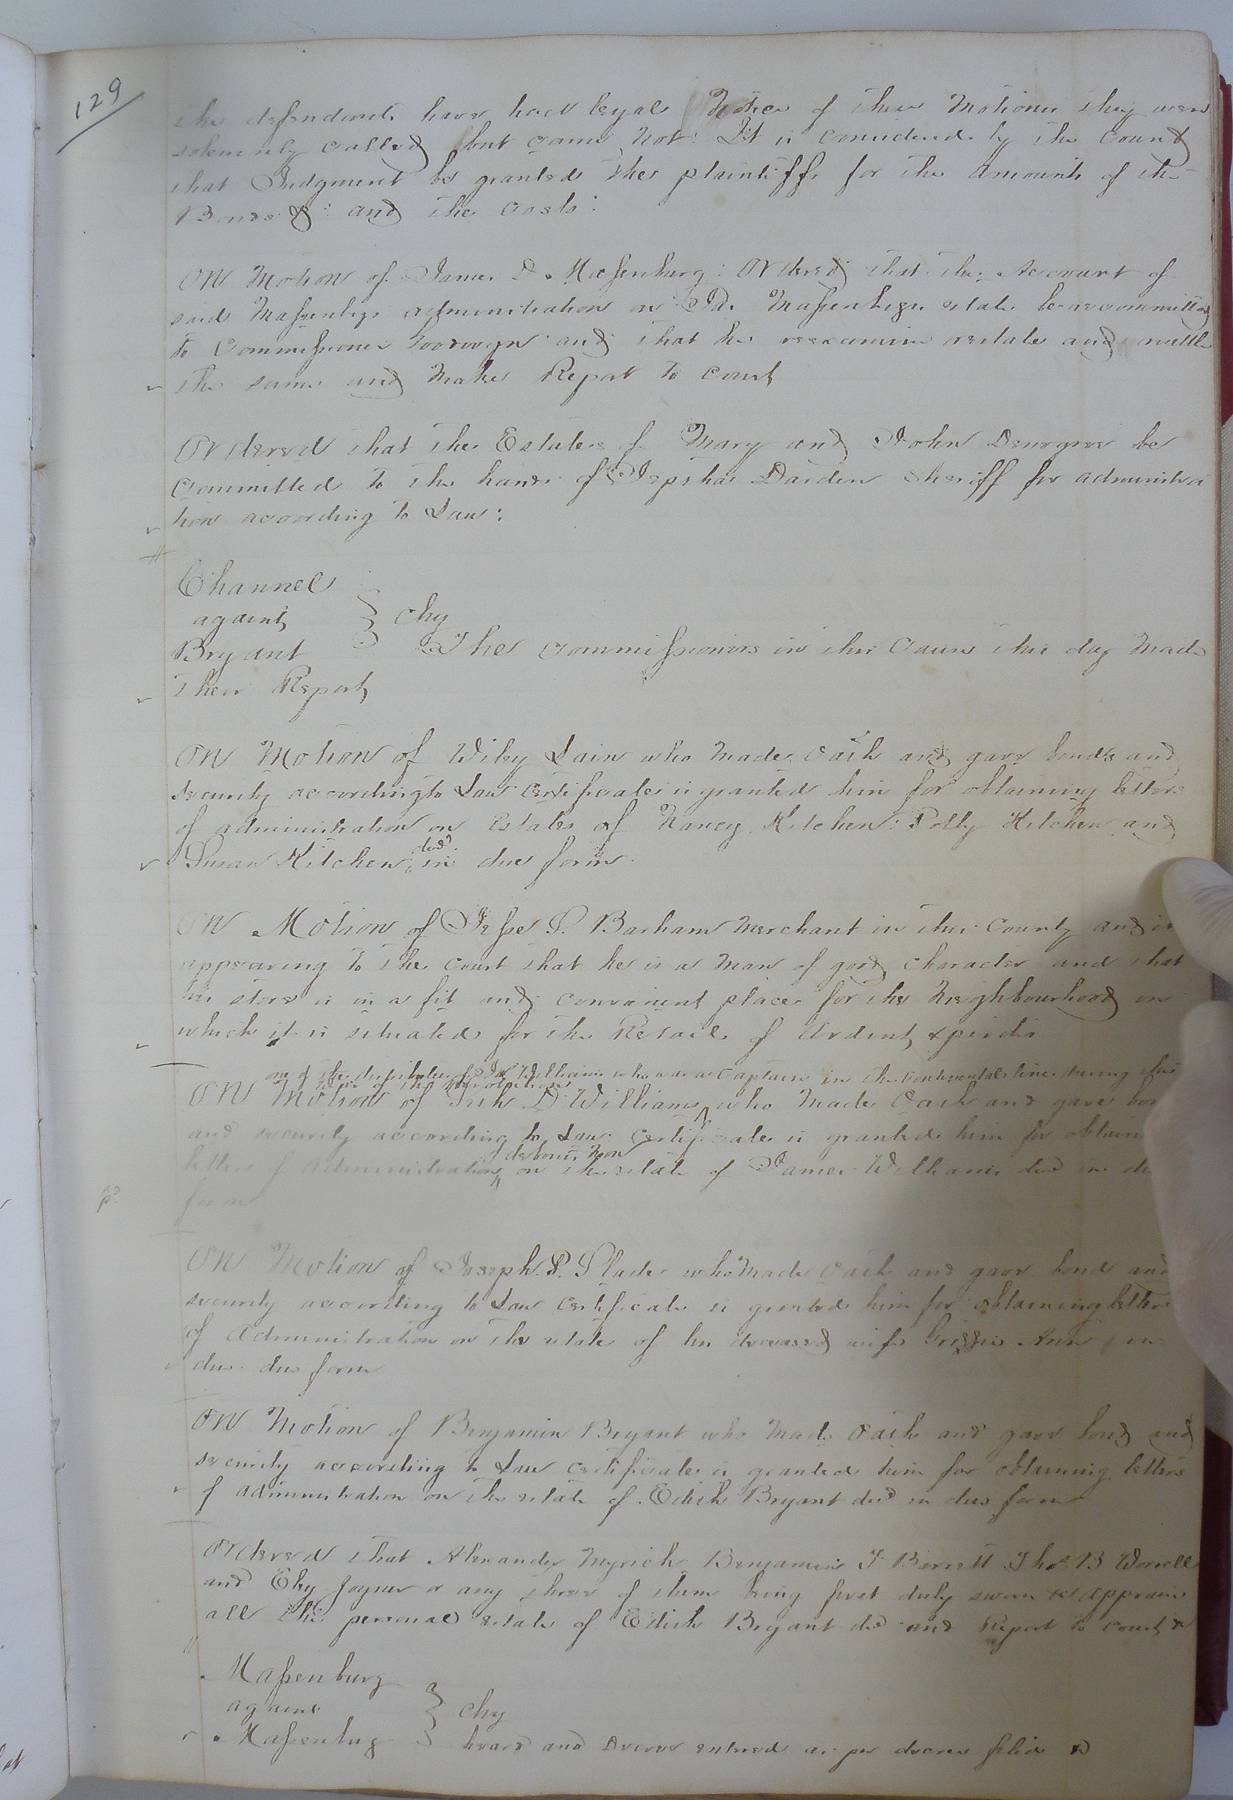 129
the defendants have had legal Notice of these Motions they were
solemnly called but came not: It is considered by the Court
that Judgment be granted the plaintiffs for the amounts of the
Bonds &: and the costs:
On Motion of James D. Massenburg: Ordered that the Account of
said Massenbgs administration on Massenbgs estate be recommitted
to Commissioner and that he reexamine restate and settle
the same and make Report to Court
Ordered that the Estates of Mary and John be
Committed to the hands of Jepthas Darden Sheriff for administra
tion according to Law:
Channel
against } chy
Bryant The Commissioners in this Cause this day Made
Their Report
On Motion of Wiley Lain who Made Oath and gave bonds and
security according to Law Certificates is granted him for obtaining letters
of administration on Estates of Nancy Kitchen: Polly Kitchen and
Susan Kitchen decd in due form.
On Motion of Jesse S. Barham Merchant in this County and it
appearing to the Court that he is a Man of good Character and that
his store is in a fit and convenient place for the Neighbourhood in
which it is situated for the Retail of Ardent spirits
one of the distributees of Jas Williams who was a Captain in the Continental line during the
War of the Revolution
On Motion of D Williams, who Made Oath and gave bond
and security according to Law Certificate is granted him for obtain
letters of administration de bonis non on the estate of James Williams decd in due
form
On Motion of Joseph P. Slade who Made Oath and gave bond and
security according to Law Certificate is granted him for obtaining letters
of Administration on the estate of his deceased wife Ann in
due due form
On Motion of Benjamin Bryant who Made Oath and gave bond and
security according to Law Certificate is granted him for obtaining letters
of administration on the estate of Edith Bryant decd in due form
Ordered that Alexander Myrick Benjamin F Barrett Thos B Worrell
and Eley Joyner or any three of them being first duly sworn do appraise
all the personal estate of Edith Bryant decd and Report to Court &
Massenburg
against } chy
Massenbug heard and Decree entered as per decree filed &